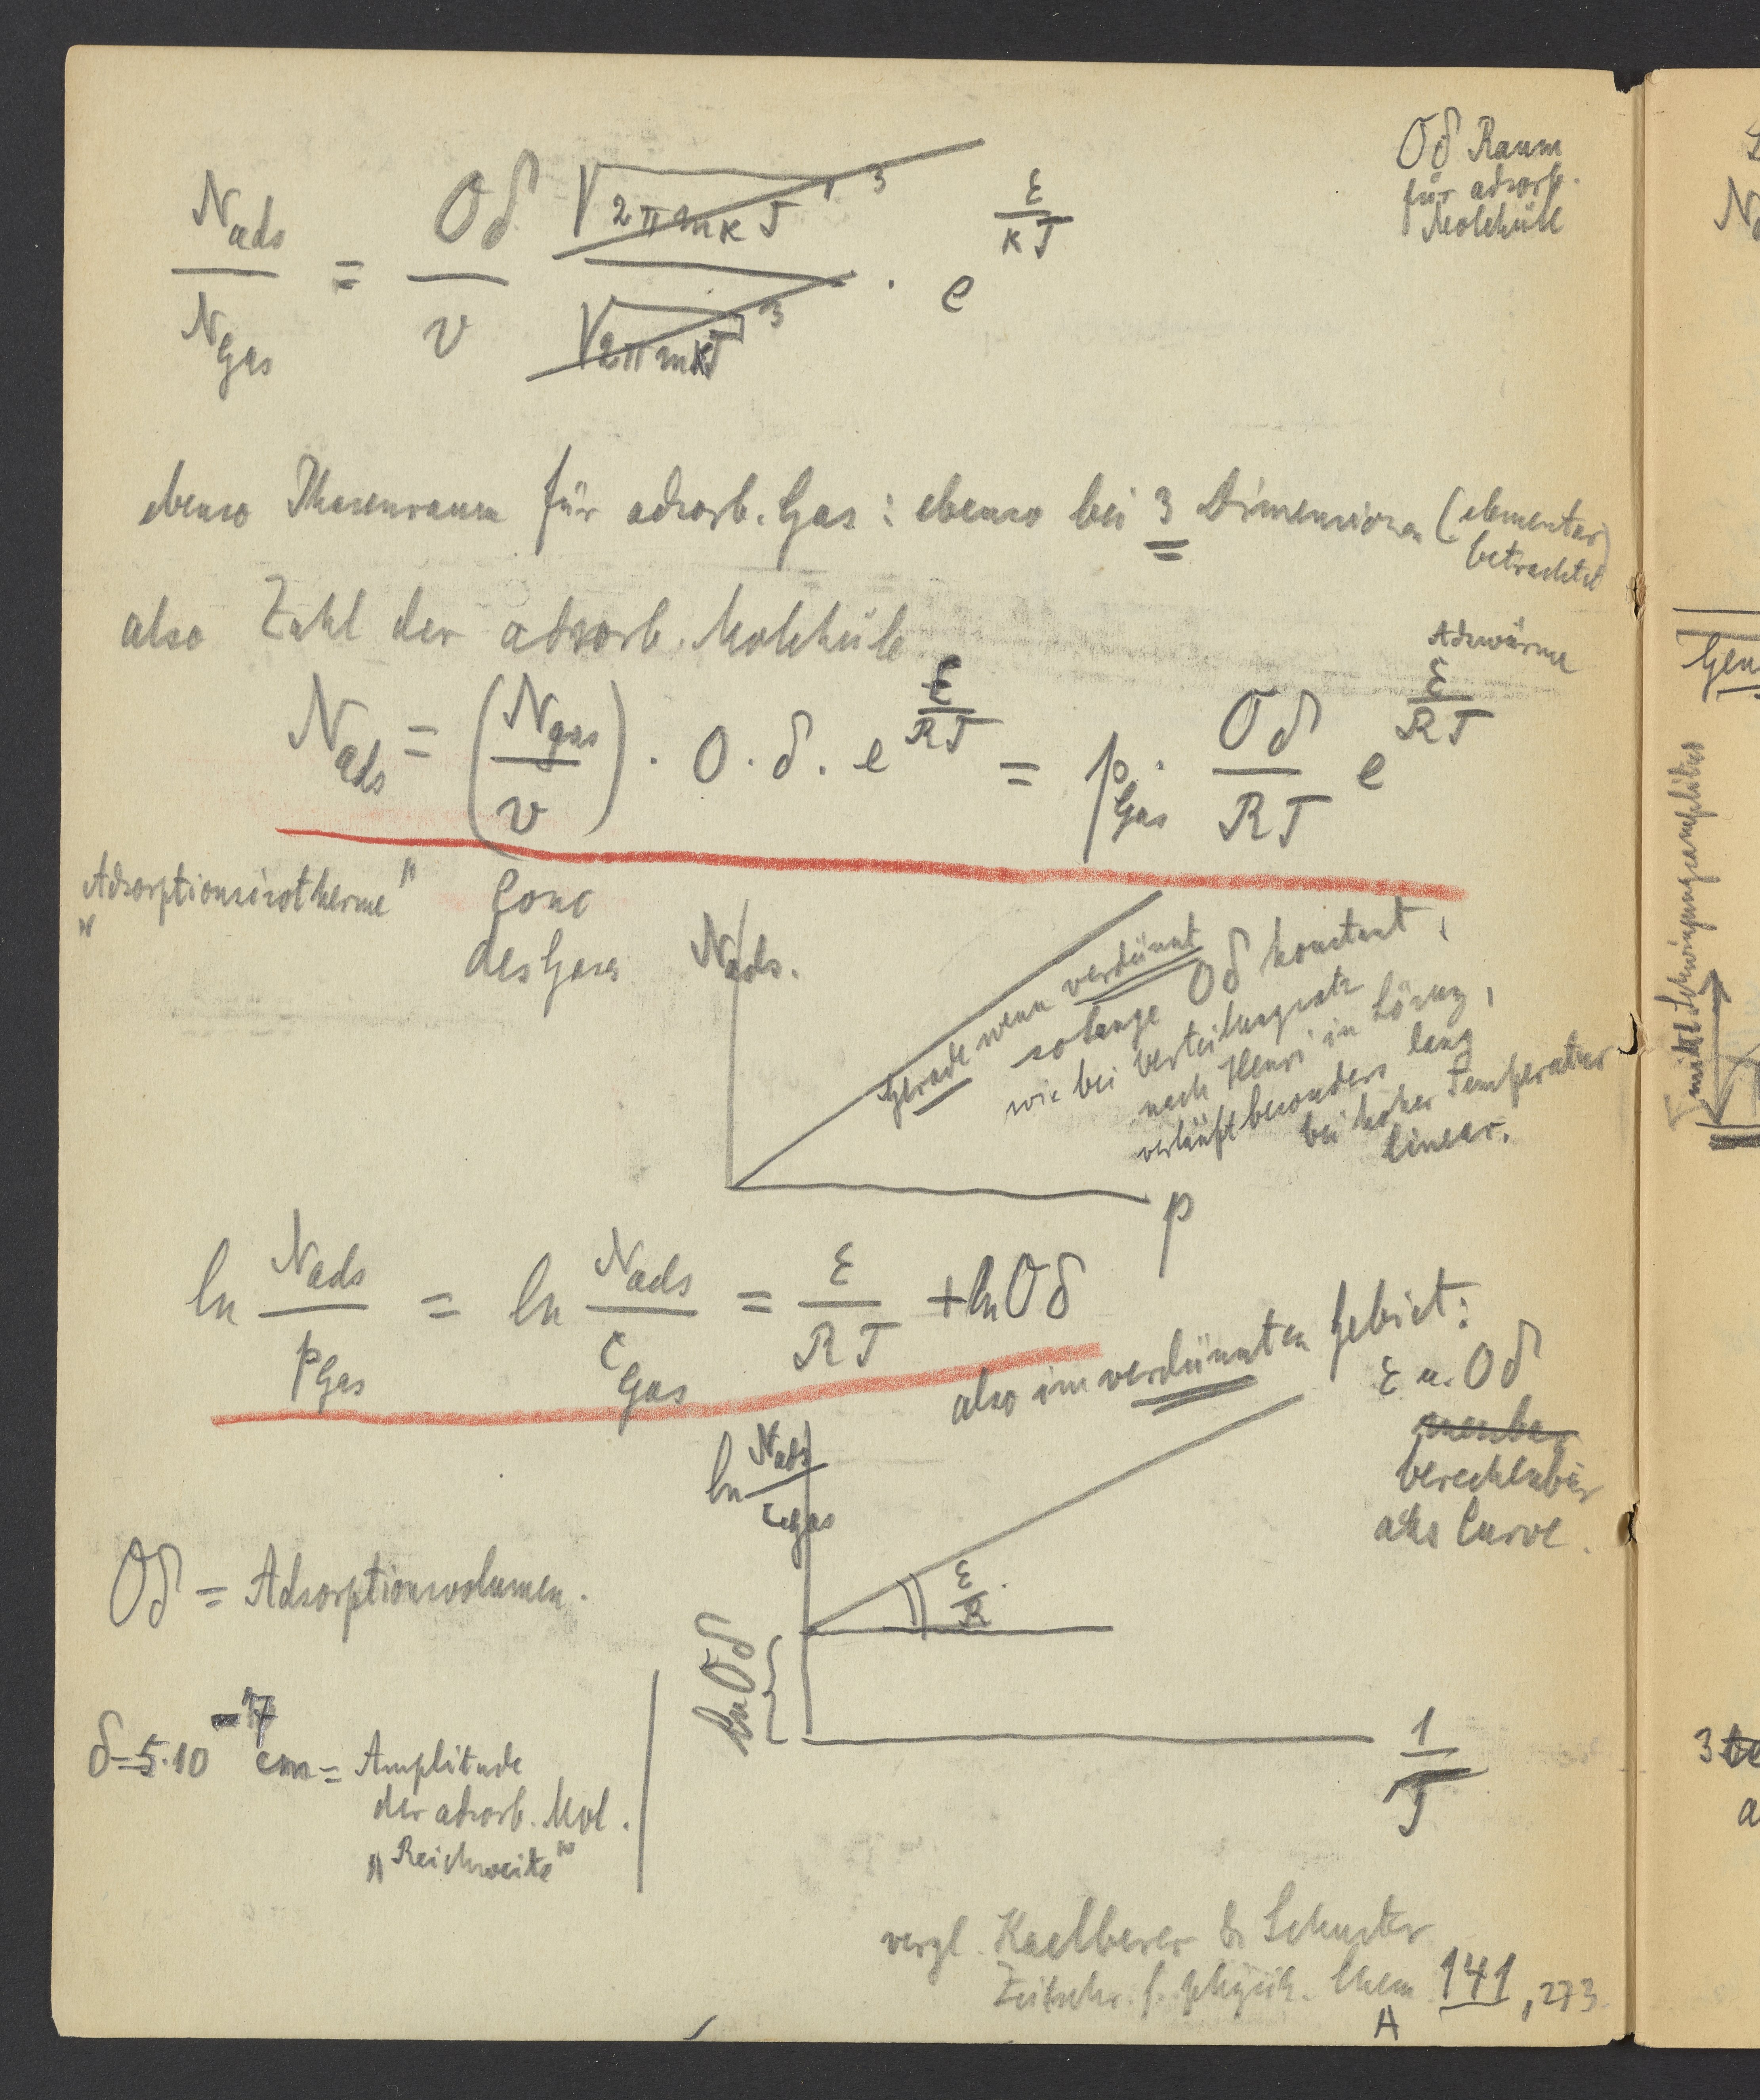 Oδ Raum
für adsorb.
Moleküle
N_ads / N_Gas = Oδ / v · √2πmkT³ / √2πmkT³ · e^(ε/kT)
ebenso Phasenraum für adsorb. Gas : ebenso bei 3 Dimensionen (elementar
betrachtet)
also Zahl der adsorb. Moleküle
Adswärme
N_ads = (N_gas / v) · O · δ · e^(ε/RT) = p_Gas · Oδ / RT e^(ε/RT)
„Adsorptionsisotherme"
Conc
des Gases
N_ads.
Gerade wenn verdünnt
solange Oδ konstant,
wie bei Verteilungssatz
nach Henri in Lösung,
verläuft besonders lang
bei hoher Temperatur
linear.
p
ln N_ads / p_Gas = ln N_ads / c_Gas = ε / RT + ln Oδ
also im verdünnten Gebiet:
ε u. Oδ
messbar
berechenbar
aus Curve.
ln N_ads / c_Gas
ε / R
ln Oδ
1 / T
Oδ = Adsorptionsvolumen.
δ = 5·10^-7 cm = Amplitude
der adsorb. Mol.
„Reichweite"
vergl. Kaelberer & Schuster
Zeitschr. f. physik. Chem A 141, 273
mittl Schwingungsamplitude